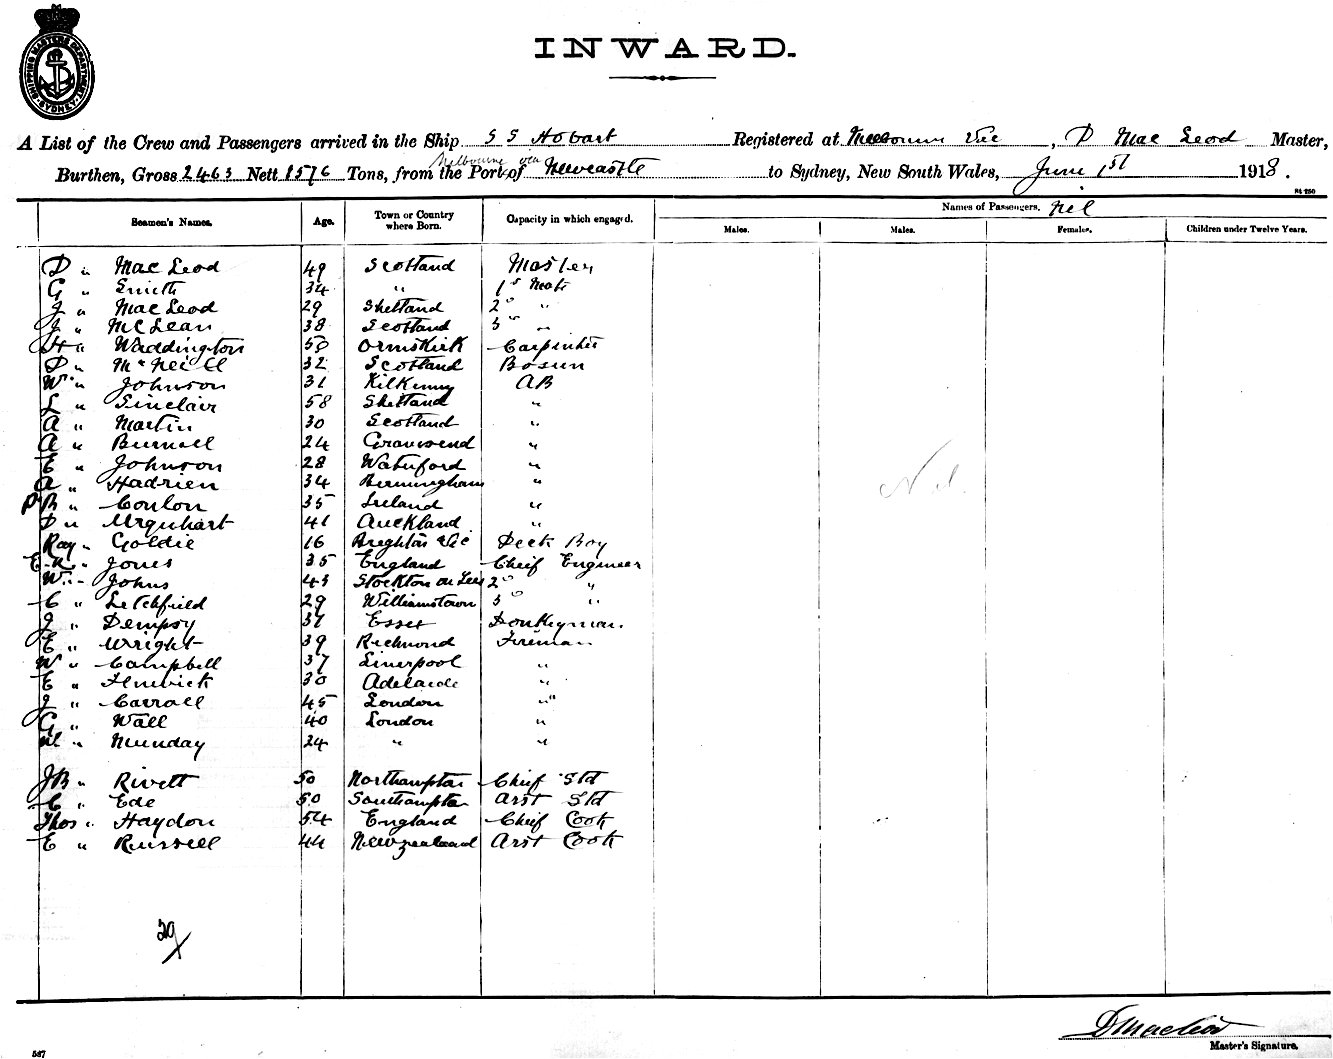 SHIPPING MASTERS DEPARTMENT
SYDNEY
INWARD.
A List of the Crew and Passengers arrived in the Ship S S Hobart Registered at Melbourne Vic, D Mac Leod Master,
Burthen, Gross 2463 Nett 1576 Tons, from the Port of Melbourne via Newcastle to Sydney, New South Wales, June 1st 1918.
Seamen's Names. Age. Town or Country where Born. Capacity in which engaged. Names of Passengers. Nil
Males. Males. Females. Children under Twelve Years.
D " Mac Leod 49 Scotland Master
G " Smith 34 " 1st Mate
J " Mac Leod 29 Shetland 2° "
J " McLean 38 Scotland 3° "
H " Waddington 50 Ormskirk Carpenter
D " McNeill 32 Scotland Bosun
Wm " Johnson 31 Kilkenny AB
L " Sinclair 58 Shetland "
A " Martin 30 Scotland "
A " Burnell 24 Gravesend "
E " Johnson 28 Waterford "
A " Hadrien 34 Birmingham "
P B " Conlon 35 Ireland "
D " Urquhart 41 Auckland "
Ray " Goldie 16 Brighton Vic Deck Boy
E.R. " Jones 35 England Cheif Engineer
W. " Johns 43 Stockton on Tees 2° "
C " Letchfield 29 Williamstown 3° "
J " Dempsy 31 Essex Donkeyman
E " Wright 39 Richmond Fireman
W " Campbell 37 Liverpool "
E " Fenwick 30 Adelaide "
J " Carroll 45 London "
G " Wall 40 London "
" Munday 24 " "
JB " Rivett 50 Northampton Chief Std
C " Ede 50 Southampton Asst Std
Thos " Haydon 54 England Chief Cook
E " Russell 44 New Zealand Asst Cook
Nil
29
D MacLeod
Master's Signature.
537